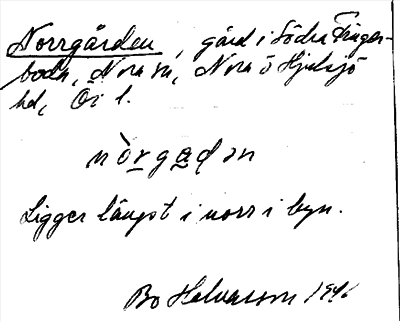 Norrgården, gård i Södra Finger-
boda, Nora sn, Nora o Hjulsjö
hd, Ör l.
nòrgadən
Ligger längst i norr i byn.
Bo Halvarson 1946